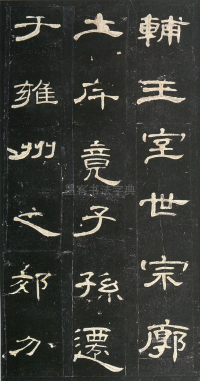 輔王室世宗廓
土斥竟子孫遷
于雍州之郊分
书法字典